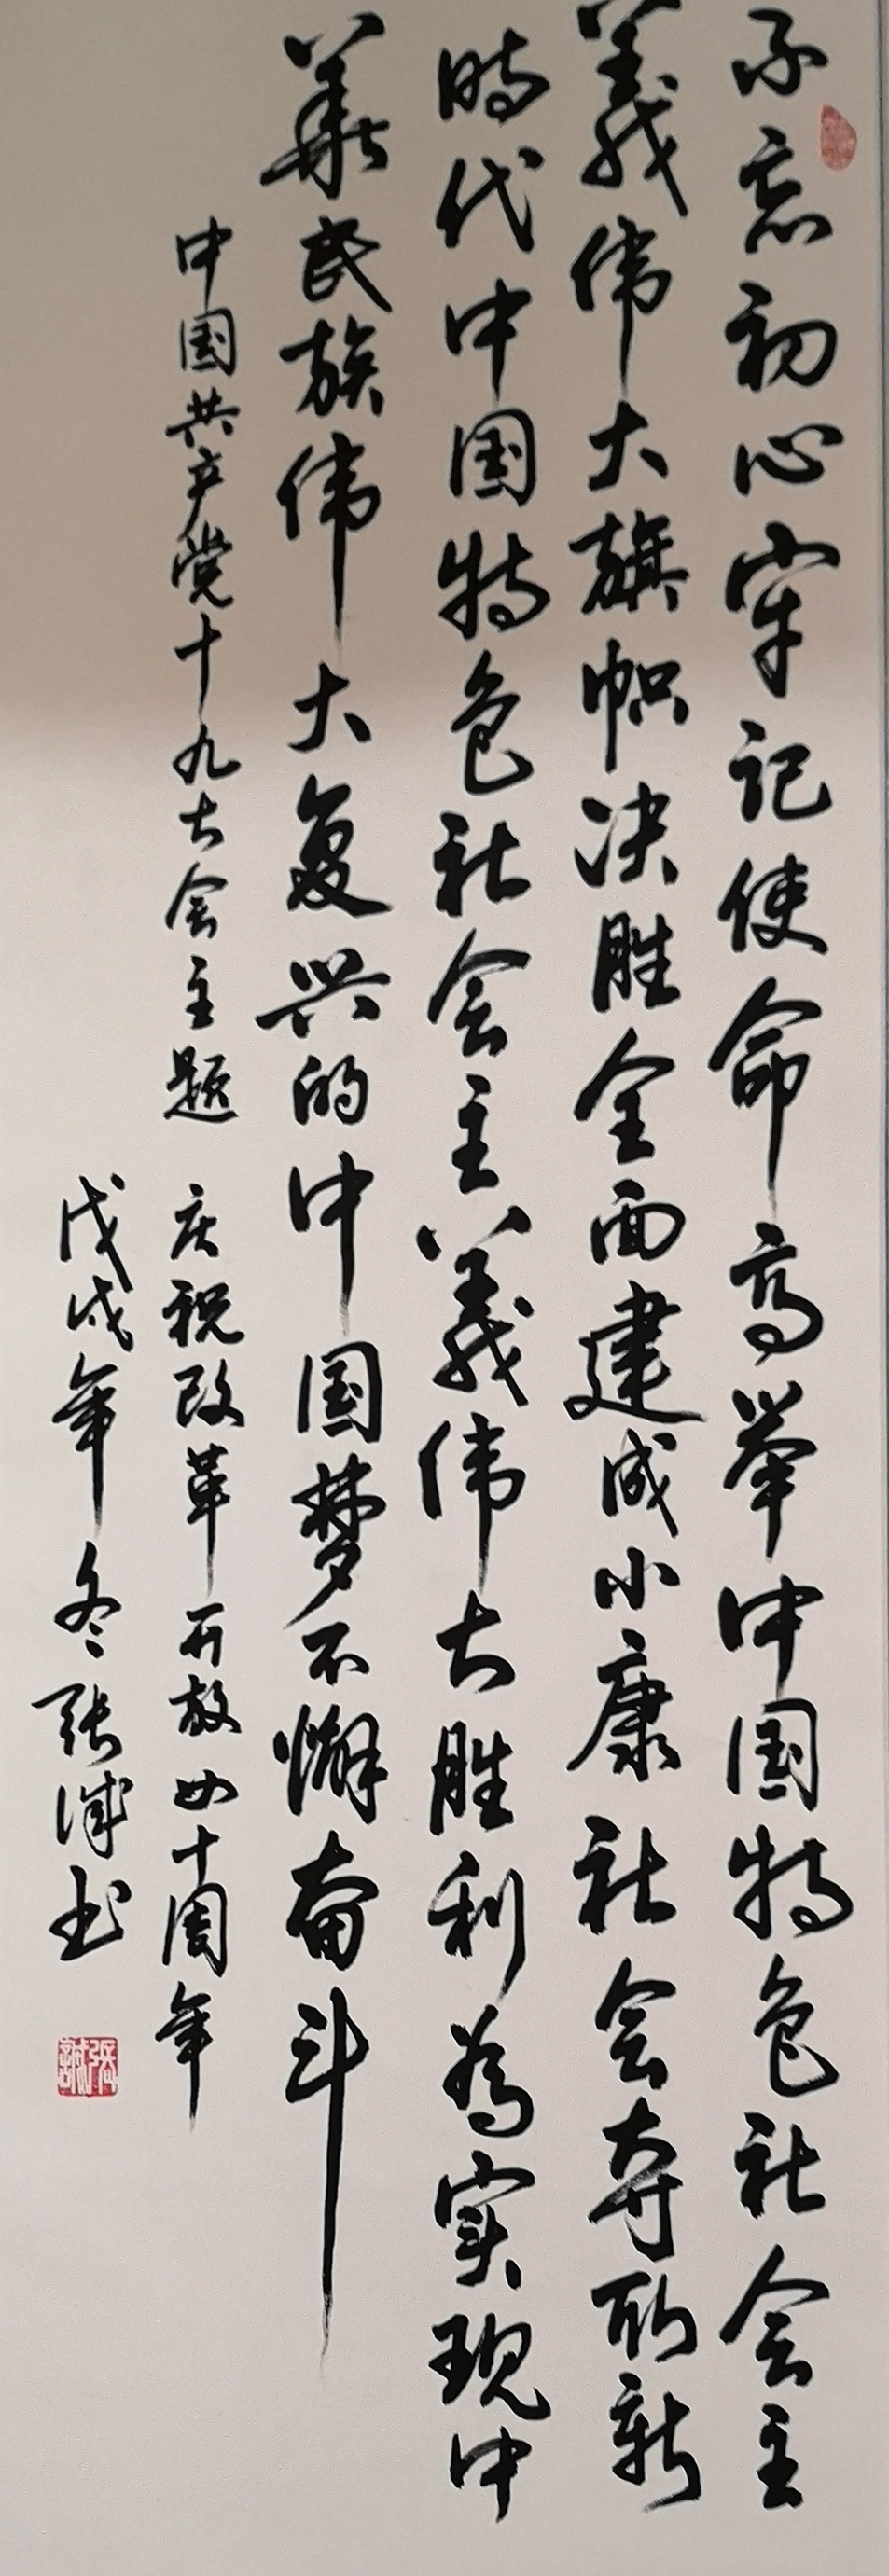 不忘初心牢记使命高举中国特色社会主
義伟大旗帜决胜全面建成小康社会夺取新
時代中国特色社会主義伟大胜利為实现中
華民族伟大复兴的中国梦不懈奋斗
中国共产党十九大会主题 庆祝改革开放四十周年
戊戌年冬张诚书
張誠